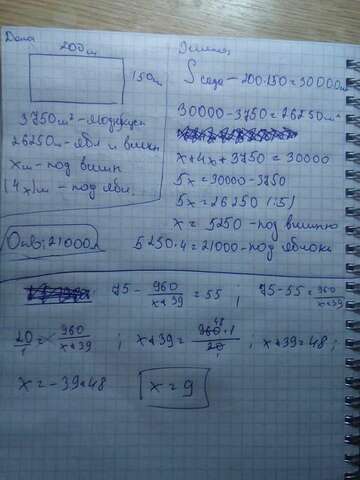 Дано
200м
150м
3750м² - молодняк
26250м - ябл и вишн
xм - под вишн
(4x)м - под ябл.
Ответ: 21000м
Решение
S сада - 200·150 = 30000м
30000 - 3750 = 26250м²
x + 4x + 3750 = 30000
5x = 30000 - 3750
5x = 26250 (:5)
x = 5250 - под вишню
5250·4 = 21000 - под яблоки
75 - 960/x+39 = 55 ; 75 - 55 = 960/x+39
20/1 = 960/x+39 ; x+39 = 960·1/20 48 1 ; x+39 = 48 ;
x = -39+48 x = 9